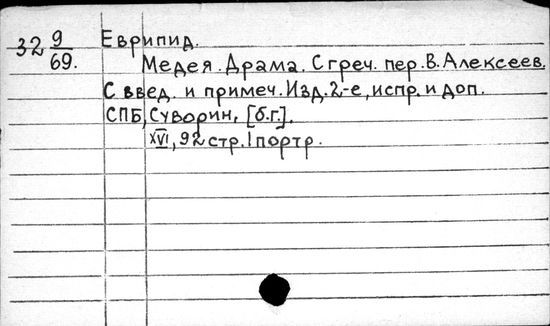 32 9/69.
Еврипид.
Медея. Драма. С греч. пер. В. Алексеев.
С введ. и примеч. Изд. 2-е, испр. и доп.
СПБ, Суворин, [б.г.].
XVI, 92 стр. 1 портр.